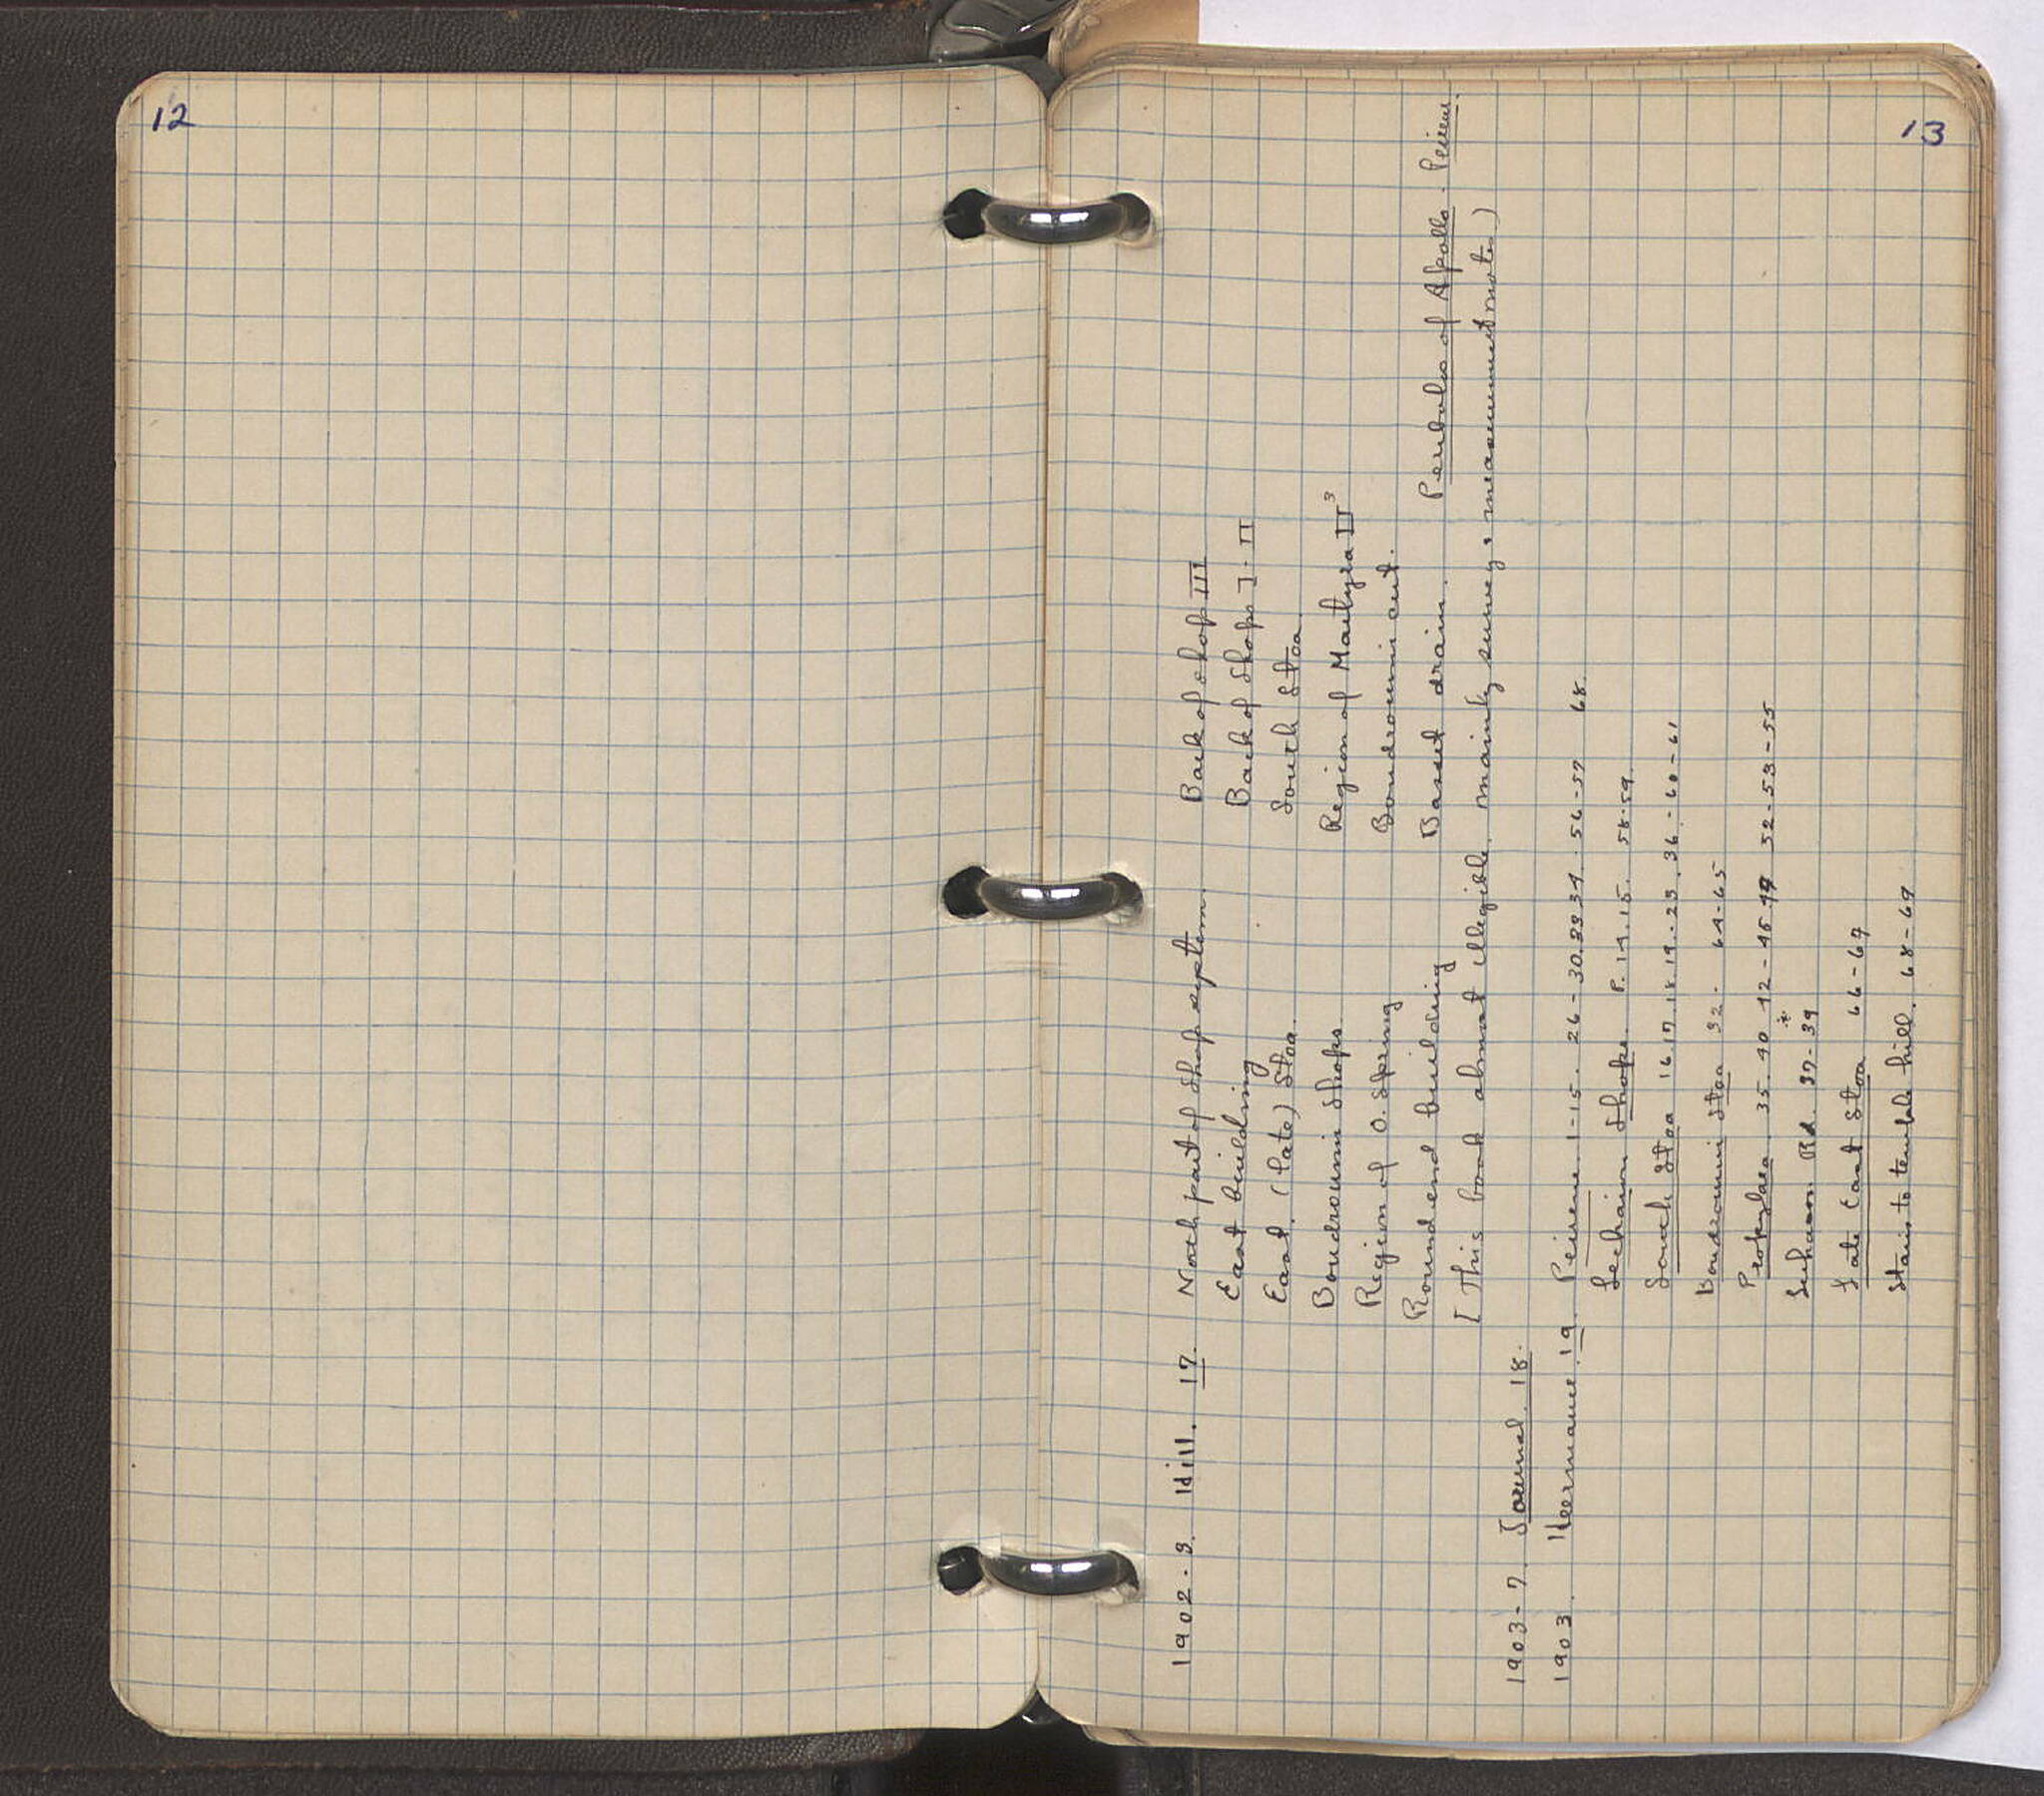 12
13
1902-3. Hill. 17. North part of shop system. Back of shop III
East building Back of Shops I-II
East (late) Stoa. South Stoa
Boudroumi Shops Region of Martyra II³
Region of O. Spring Boudroumi cut.
Round end building Basset drain. Peribolos of Apollo. Peirene.
[This book almost illegible, mainly survey & measurement notes)
1903-7. Journal. 18.
1903. Heermance. 19. Peirene 1-15. 26-30.33 34. 56-57 68.
Lechaion Shops. P. 14.15. 58-59.
South Stoa 16 17.18.19.-23.36-60-61
Boudroumi Stoa 32. 64-65
Propylaea 35.40 42-45 49 52-53-55
Lechaeon Rd. 37-39
Late East Stoa 66-67
Stairs to temple hill. 68-69